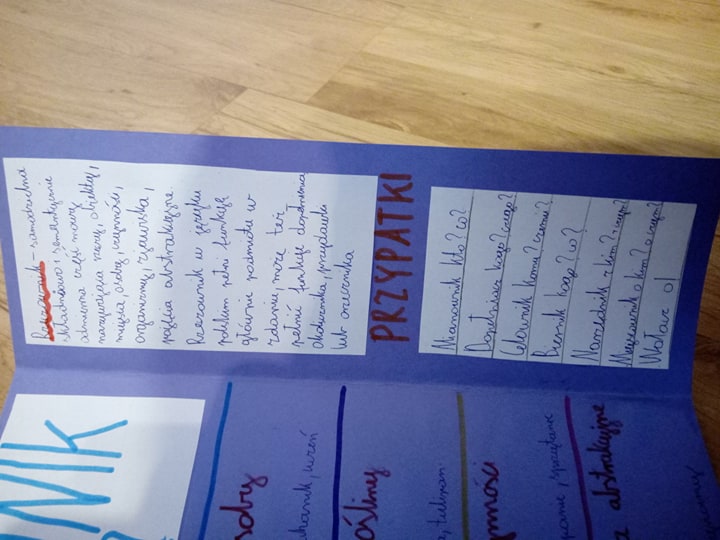 Rzeczownik - samodzielna
składniowo i semantycznie
odmienna część mowy
nazywająca rzeczy, obiekty,
miejsca, osoby, czynności,
organizmy, zjawiska,
pojęcia abstrakcyjne
Rzeczownik w języku
polskim pełni funkcję
głównie podmiotu w
zdaniu może też
pełnić funkcje dopełnienia
okolicznika, przydawki
lub orzecznika
PRZYPATKI
Mianownik kto? co?
Dopełniacz kogo? czego?
Celownik komu? czemu?
Biernik kogo? co?
Narzędnik z kim? z czym?
Miejscownik o kim? o czym?
Wołacz o!
NIK
soby
charik, uczeń
ośliny
, tulipan
ności
anie, sprzątanie
a abstrakcyjne